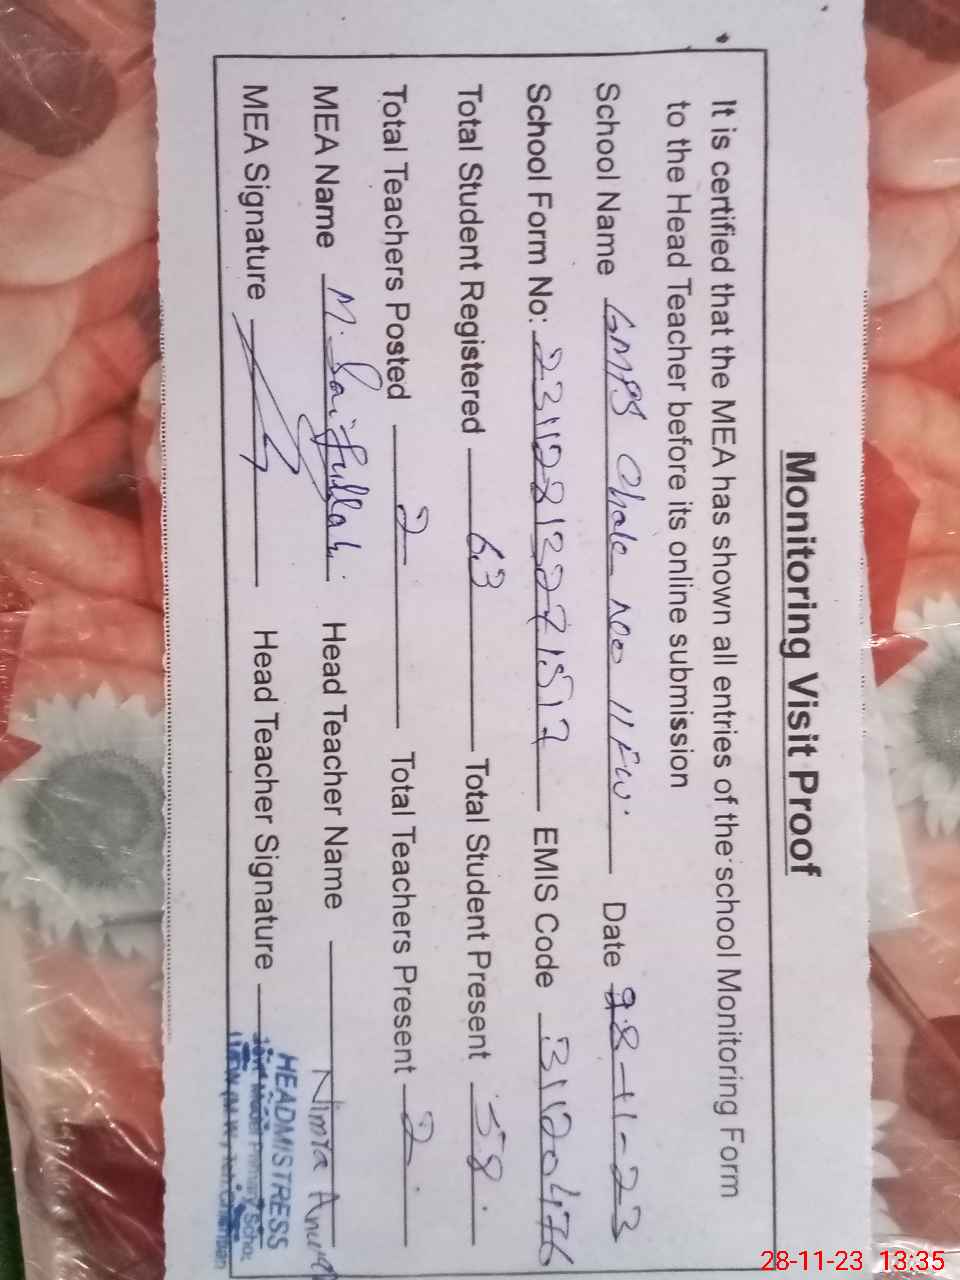 Monitoring Visit Proof
It is certified that the MEA has shown all entries of the school Monitoring Form
to the Head Teacher before its online submission
School Name GMPS Chak No 11 FW. Date 28-11-23
School Form No: EMIS Code 31120476
Total Student Registered 63 Total Student Present 58
Total Teachers Posted 2 Total Teachers Present 2
MEA Name M. Saifullah Head Teacher Name Nimra
MEA Signature Head Teacher Signature
HEADMISTRESS
Primary
28-11-23 13:35